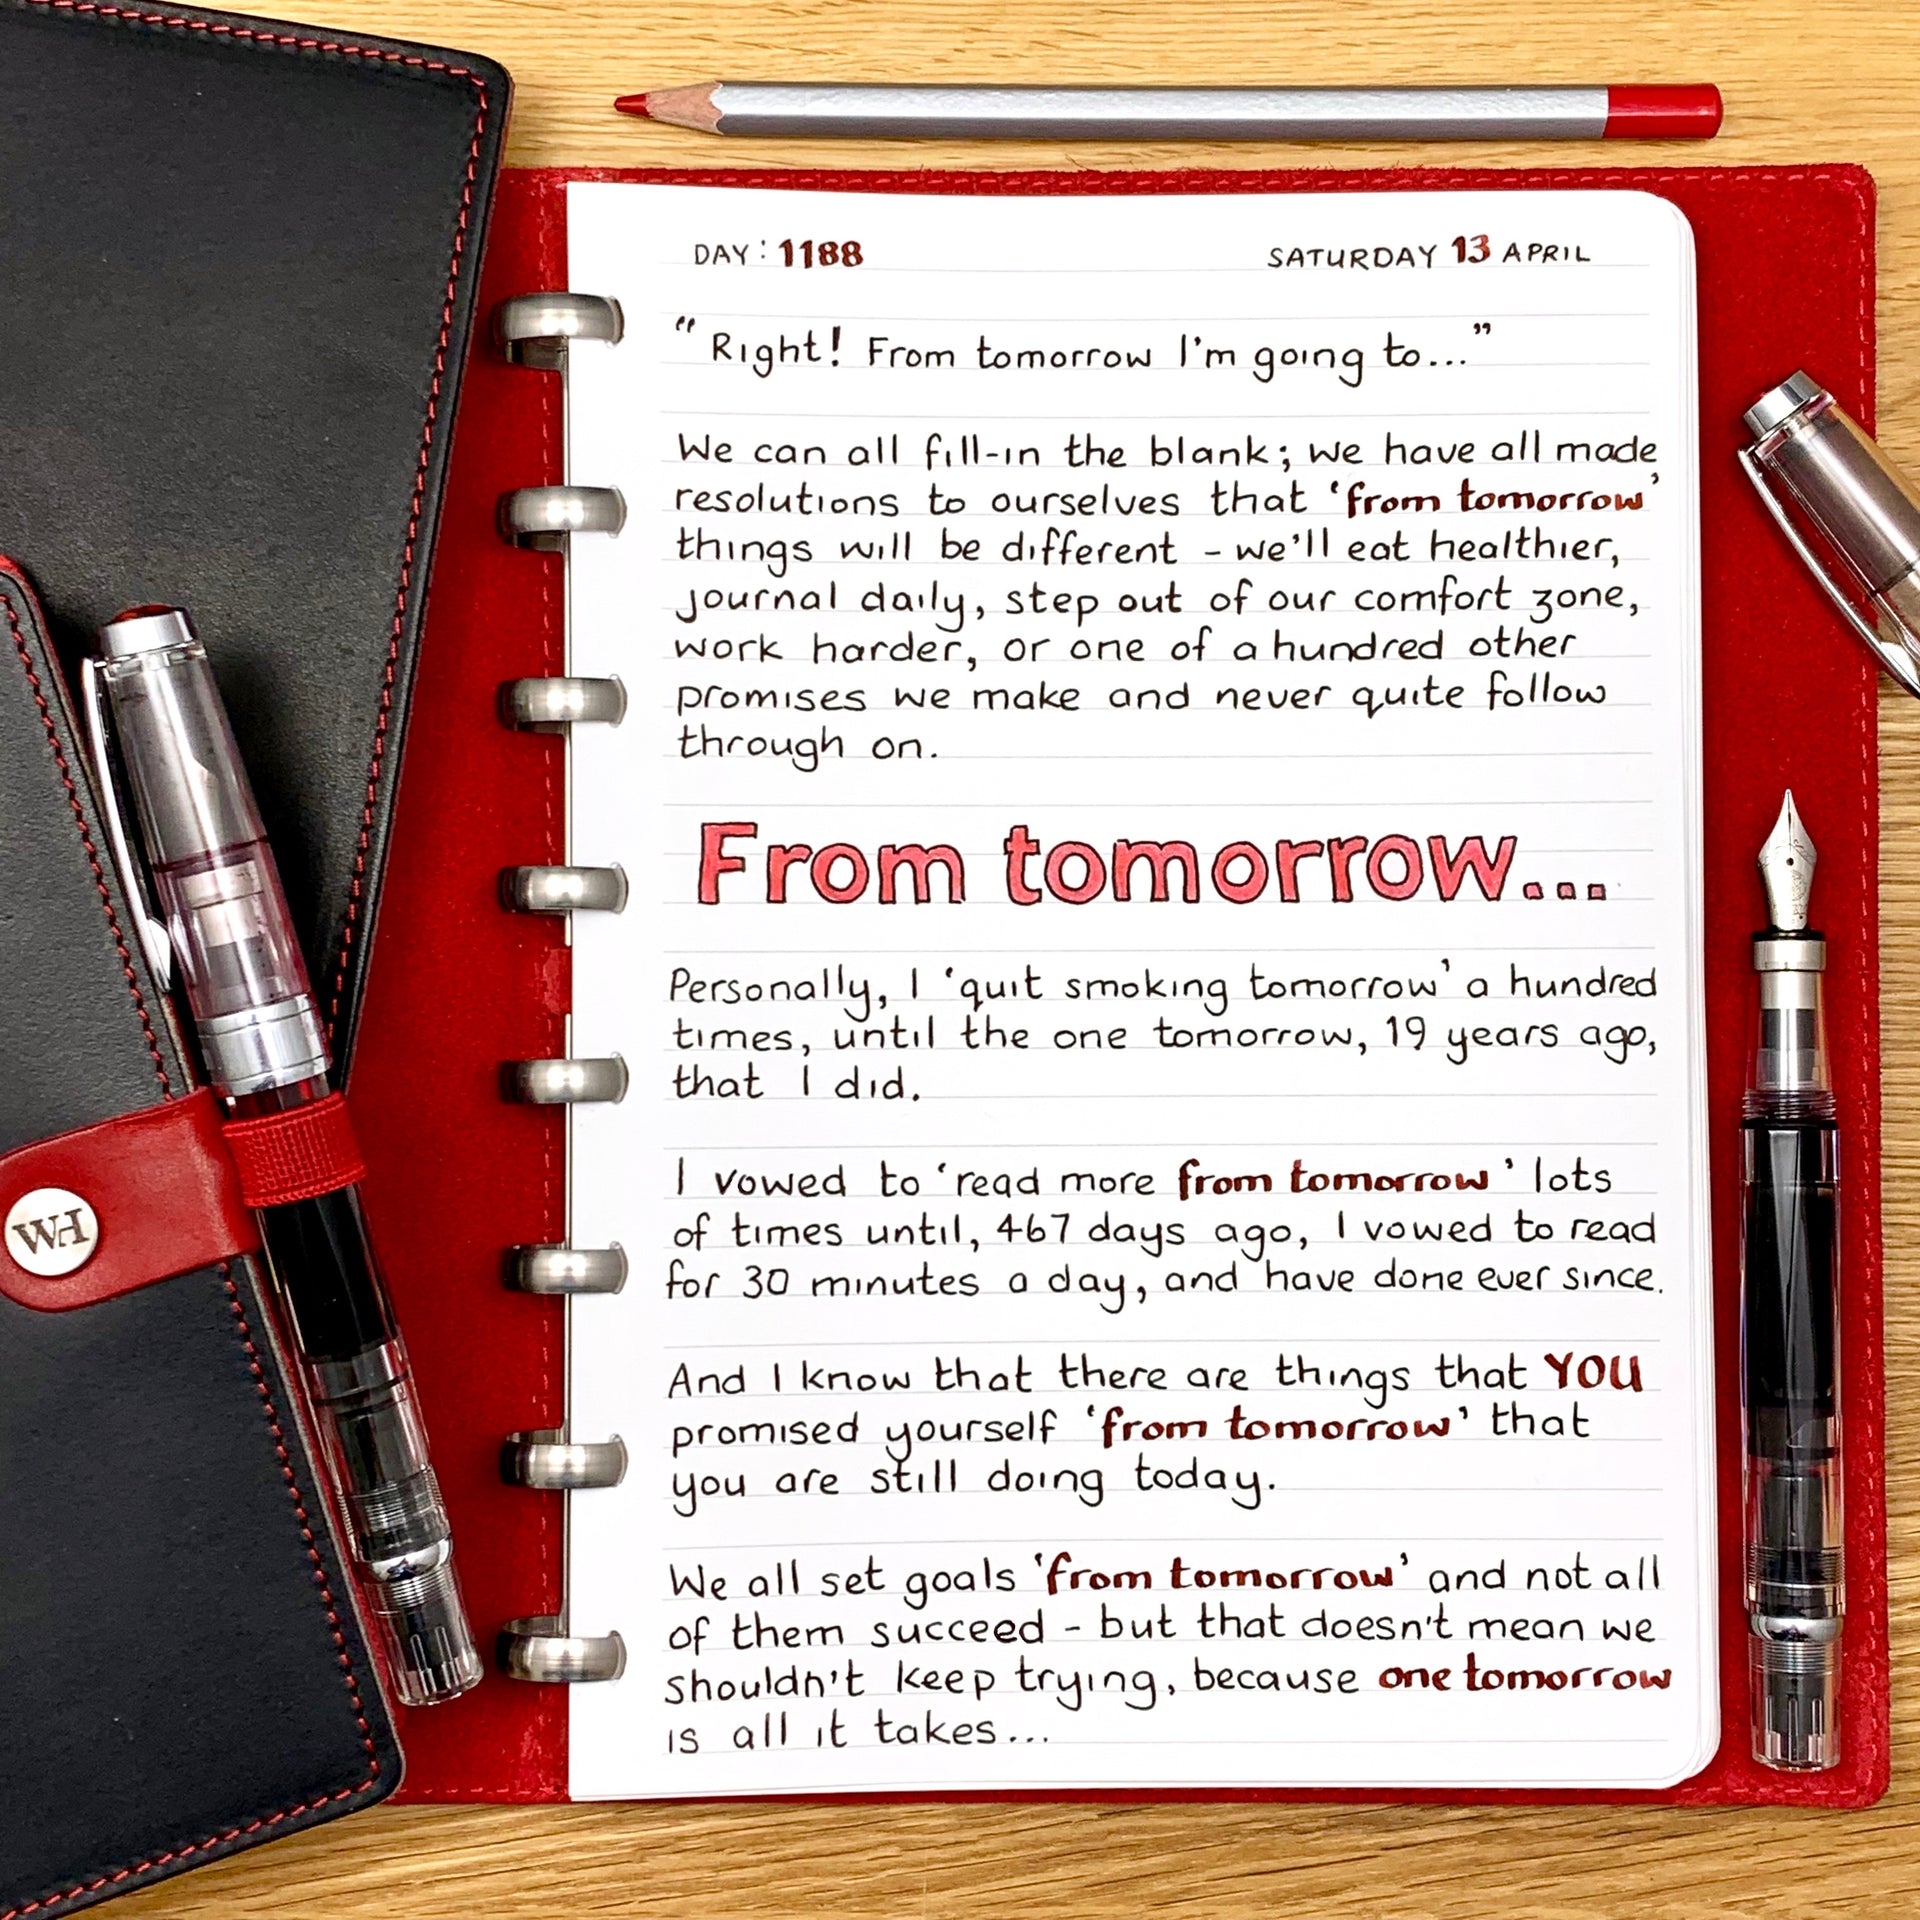 DAY: 1188
SATURDAY 13 APRIL
"Right! From tomorrow I'm going to..."
We can all fill-in the blank; we have all made
resolutions to ourselves that 'from tomorrow'
things will be different - we'll eat healthier,
journal daily, step out of our comfort zone,
work harder, or one of a hundred other
promises we make and never quite follow
through on.
From tomorrow...
Personally, I 'quit smoking tomorrow' a hundred
times, until the one tomorrow, 19 years ago,
that I did.
I vowed to 'read more from tomorrow' lots
of times until, 467 days ago, I vowed to read
for 30 minutes a day, and have done ever since.
And I know that there are things that YOU
promised yourself 'from tomorrow' that
you are still doing today.
We all set goals 'from tomorrow' and not all
of them succeed - but that doesn't mean we
shouldn't keep trying, because one tomorrow
is all it takes...
WH